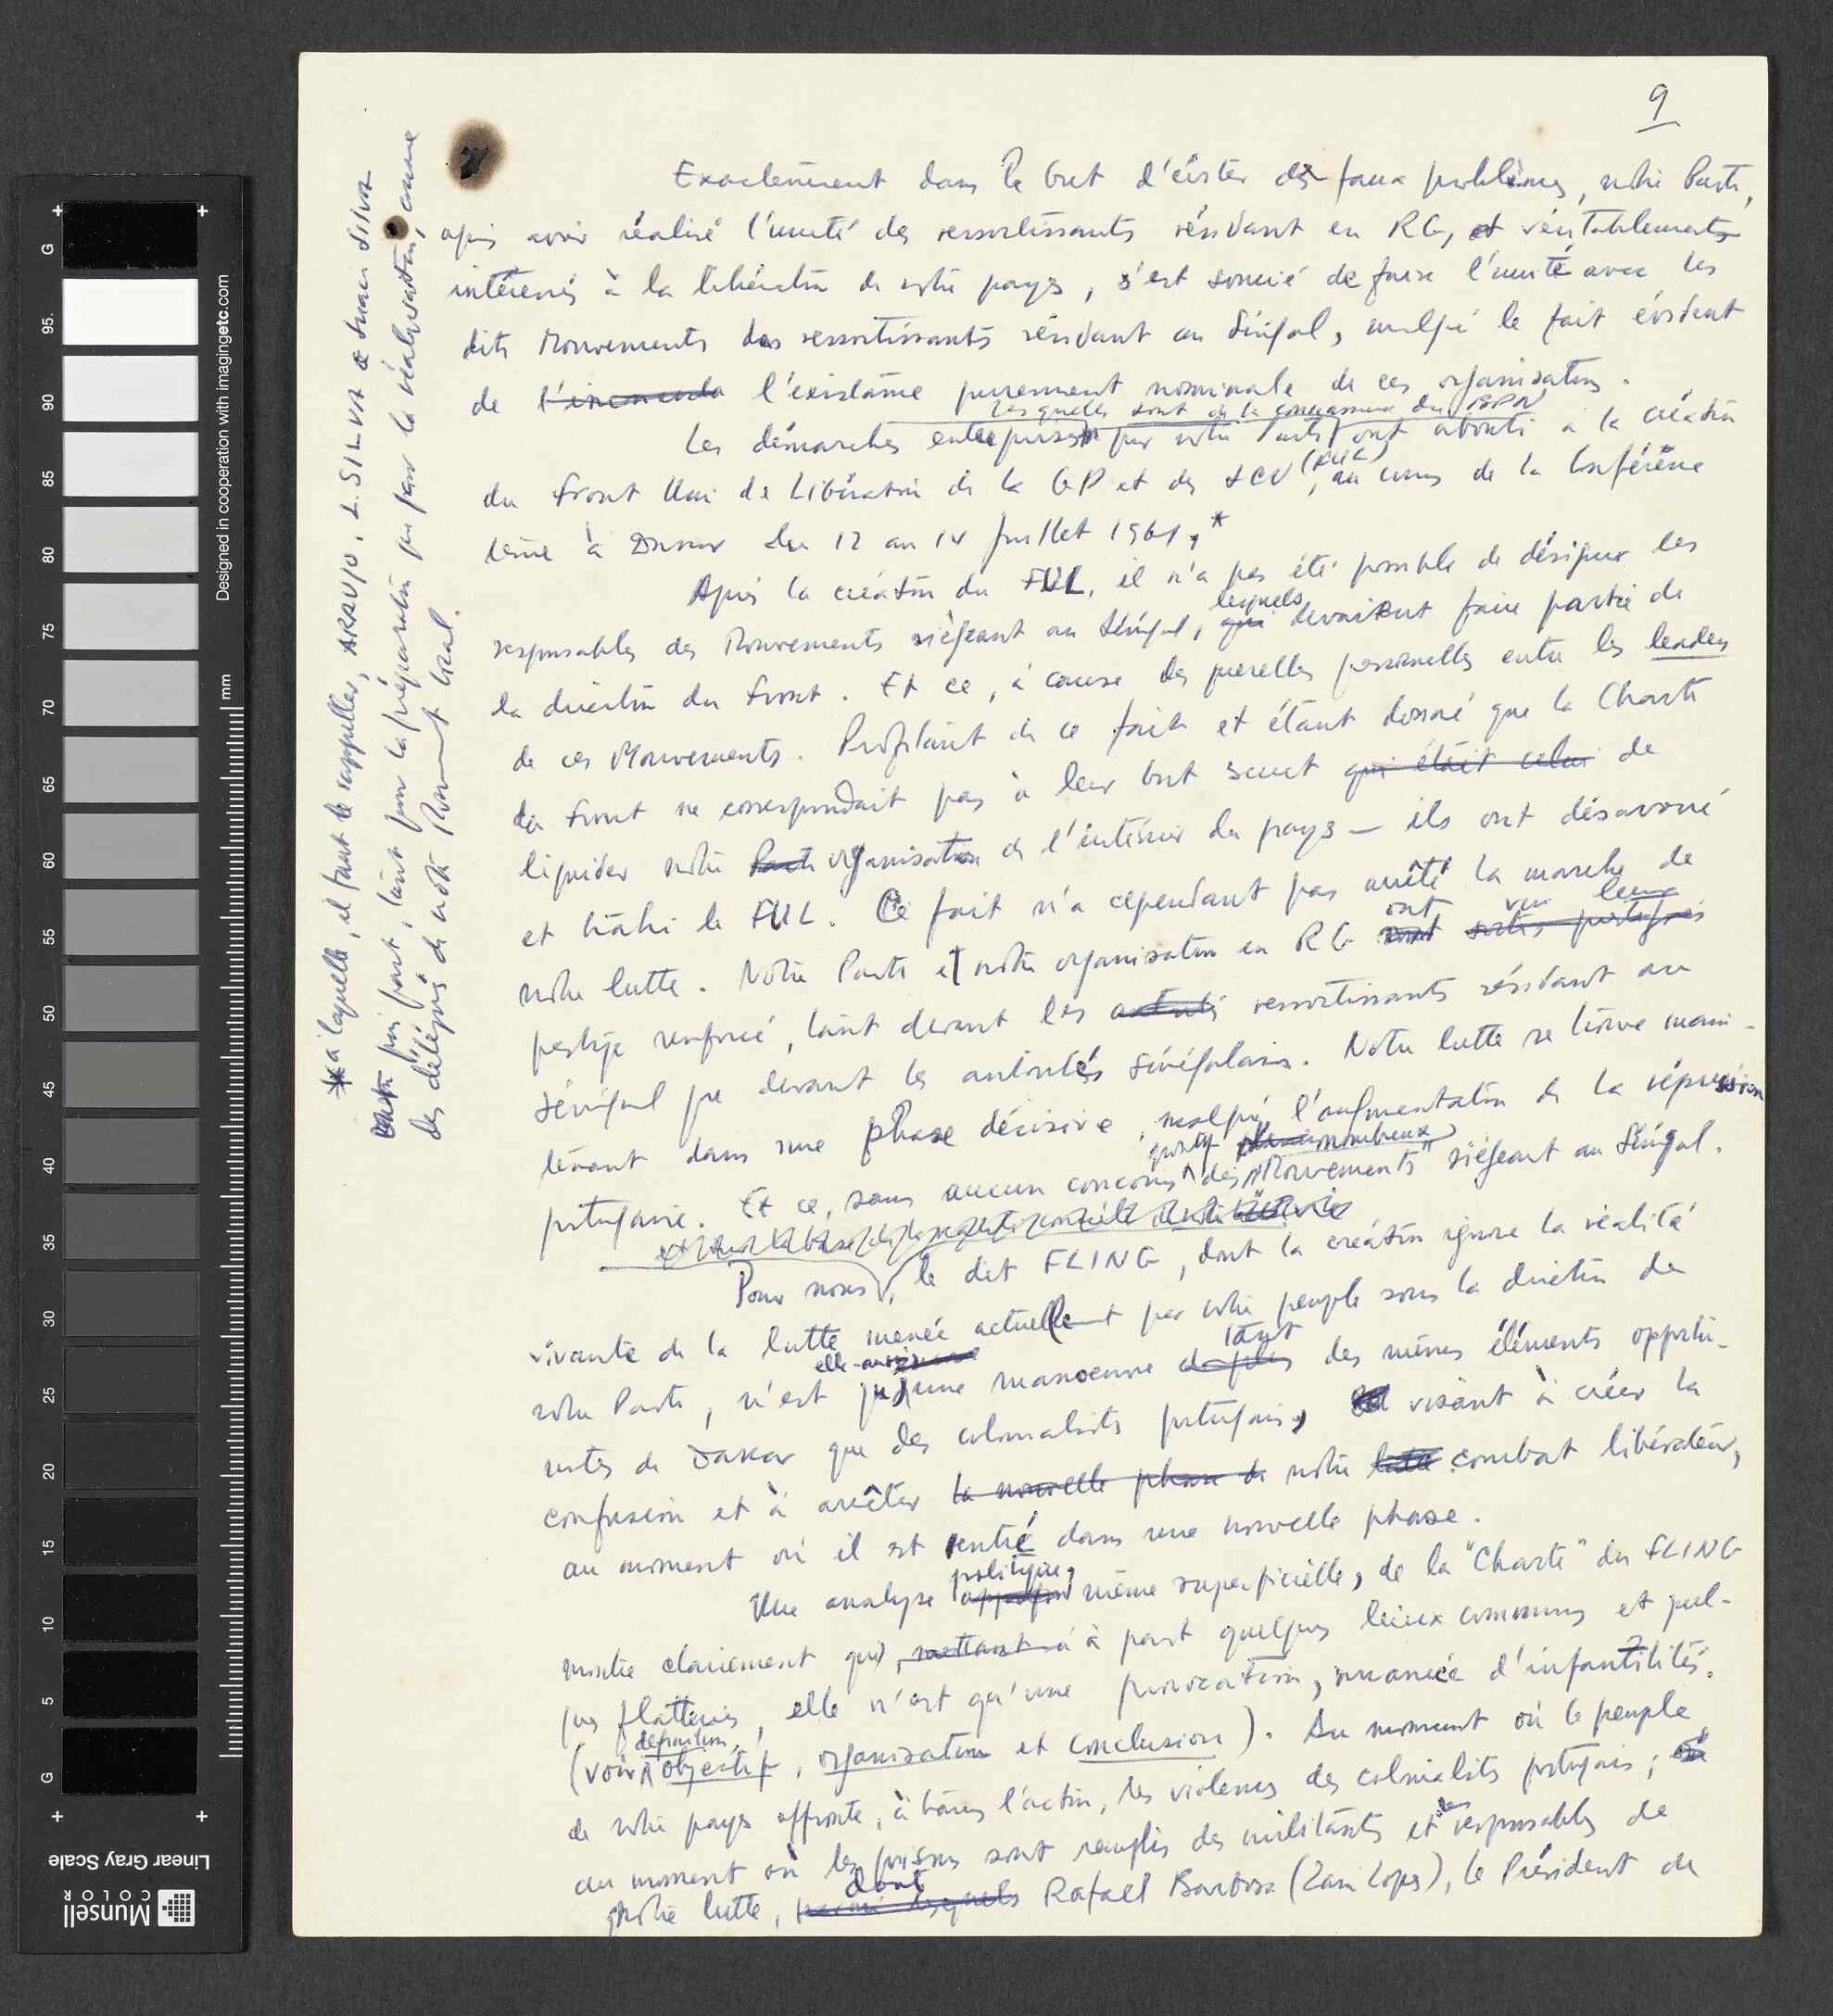 9
Exactement dans le but d'éviter des faux problèmes, notre Parti,
après avoir réalisé l'unité des ressortissants résidant en RG, et véritablements
intéressés à la libération de notre pays, s'est soucié de faire l'unité avec les
dits Mouvements des ressortissants résidant au Sénégal, malgré le fait évident
de l'existance purement nominale de ces organisations.
lesquelles sont de la connaissance du BPN
Les démarches entreprises par notre Parti ont abouti à la création
du Front Uni de Libération de la GP et des ICV (FUL), au cours de la Conférence
tenue à Dakar du 12 au 14 juillet 1961,*
Après la création du FUL, il n'a pas été possible de désigner les
responsables des Mouvements siégeant au Sénégal, qui lesquels devaient faire partie de
la direction du Front. Et ce, à cause des querelles personnelles entre les leaders
de ces Mouvements. Profitant de ce fait et étant donné que la Charte
du Front ne correspondait pas à leur but secret qui était celui de
liquider notre Parti organisation de l'intérieur du pays — ils ont désavoué
et trahi le FUL. Ce fait n'a cependant pas arrêté la marche de
notre lutte. Notre Parti et notre organisation en RG sont ont vu leur
prestige renforcé, tant devant les ressortissants résidant au
Sénégal que devant les autorités sénégalaises. Notre lutte se trouve main-
tenant dans une phase décisive, malgré l'augmentation de la répression
portugaise. Et ce, sans aucun concours des "Mouvements" siégeant au Sénégal.
Pour nous, le dit FLING, dont la création ignore la réalité
vivante de la lutte menée actuellement par notre peuple sous la direction de
notre Parti, n'est qu'une manoeuvre tant des mêmes éléments opportu-
nistes de Dakar que des colonialistes portugais, visant à créer la
confusion et à arrêter la nouvelle phase de notre lutte combat libérateur,
au moment où il est rentré dans une nouvelle phase.
Une analyse politique, même superficielle, de la "Charte" du FLING
montre clairement que, mettant à à part quelques lieux communs et quel-
ques flatteries, elle n'est qu'une provocation, nuancée d'infantilités.
(voir définition, objectif, organisation et conclusion). Au moment où le peuple
de notre pays affronte, à travers l'action, les violences des colonialistes portugais;
au moment où les prisons sont remplies des militants et des responsables de
notre lutte, parmi lesquels dont Rafael Barbosa (Zain Lopes), le Président de
* à laquelle, il faut le rappeler, ARAUJO, L. SILVA e Inacio SILVA
ont pris part, tant pour la préparation que pour la réalisation, comme
des délégués de notre Mouvement local.
+ + + +
G 95. 90 85 80 75 70 65 60 55 50 45 40 35 30 25 20 15 10 5 G
mm
Designed in cooperation with imagingetc.com
Munsell
COLOR
Linear Gray Scale